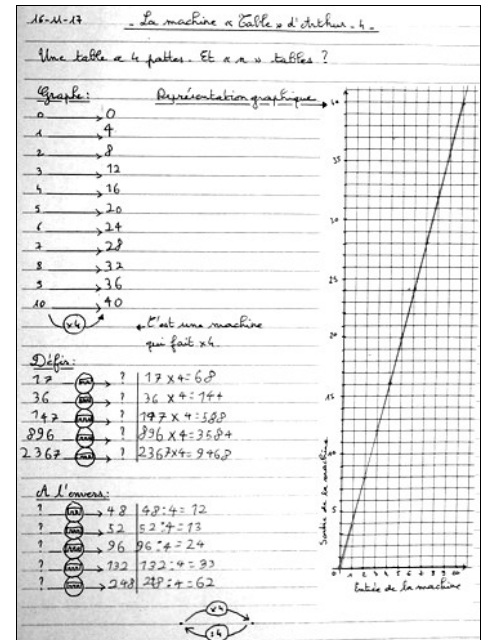 16-11-17 - La machine « Table » d'Arthur - 4 -
Une table a 4 pattes. Et « n » tables ?
Graphe :
Représentation graphique
0 → 0
1 → 4
2 → 8
3 → 12
4 → 16
5 → 20
6 → 24
7 → 28
8 → 32
9 → 36
10 → 40
x4
C'est une machine
qui fait x4.
Défis :
17 → ? 17 x 4 = 68
36 → ? 36 x 4 = 144
147 → ? 147 x 4 = 588
896 → ? 896 x 4 = 3584
2367 → ? 2367 x 4 = 9468
A l'envers :
? → 48 48 : 4 = 12
? → 52 52 : 4 = 13
? → 96 96 : 4 = 24
? → 132 132 : 4 = 33
? → 248 248 : 4 = 62
x4
:4
40
35
30
25
20
15
10
5
0 1 2 3 4 5 6 7 8 9 10
Sortie de la machine
Entrée de la machine